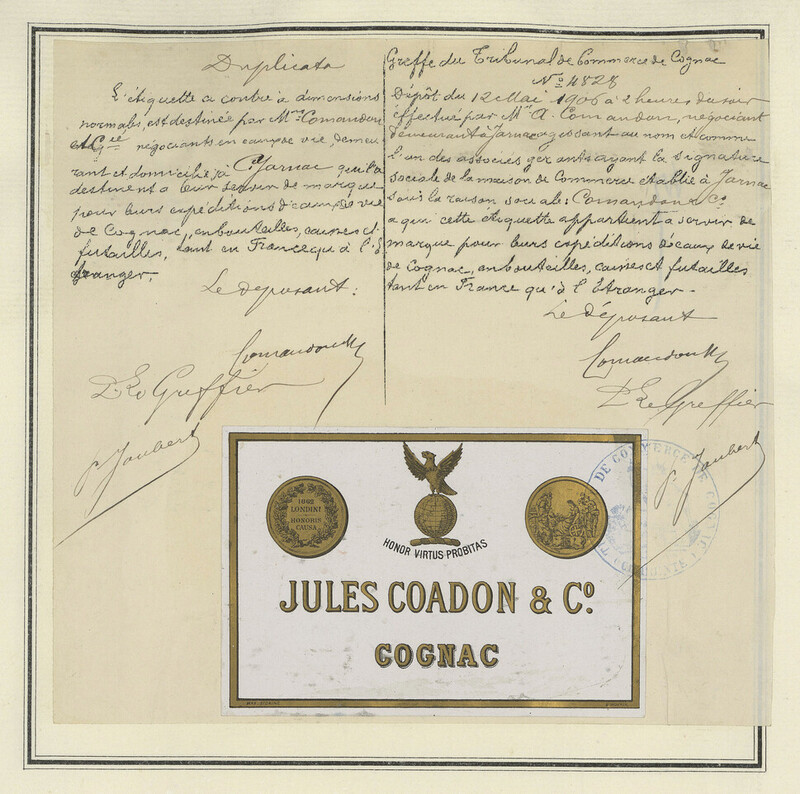 Duplicata
L'étiquette ci contre à dimensions
normales, est destinée par Mrs Comandon
et Cie négociants en eaux de vie, demeu
rant et domiciliés à Jarnac qu'ils
destinent a leur servir de marque
pour leurs expéditions d'eaux de vie
de Cognac, en bouteilles, caisses et
futailles, tant en France qu'à l'É
tranger.
Le déposant :
Comandon
Le Greffier
Joubert
Greffe du Tribunal de Commerce de Cognac
No 4828
Dépôt du 12 Mai 1906 à 2 heures du soir
effectué par Mr A. Comandon, négociant
demeurant à Jarnac agissant au nom et comme
l'un des associés gérants ayant la signature
sociale de la maison de Commerce établie à Jarnac
sous la raison sociale : Comandon & Co
a qui cette étiquette appartient a servir de
marque pour leurs expéditions d'eaux de vie
de Cognac, en bouteilles, caisses et futailles
tant en France qu'à l'Etranger.
Le déposant
Comandon
Le Greffier
Joubert
DE COMMERCE DE COGNAC
1862
LONDINI
HONORIS
CAUSA
HONOR VIRTUS PROBITAS
JULES COADON & Co.
COGNAC